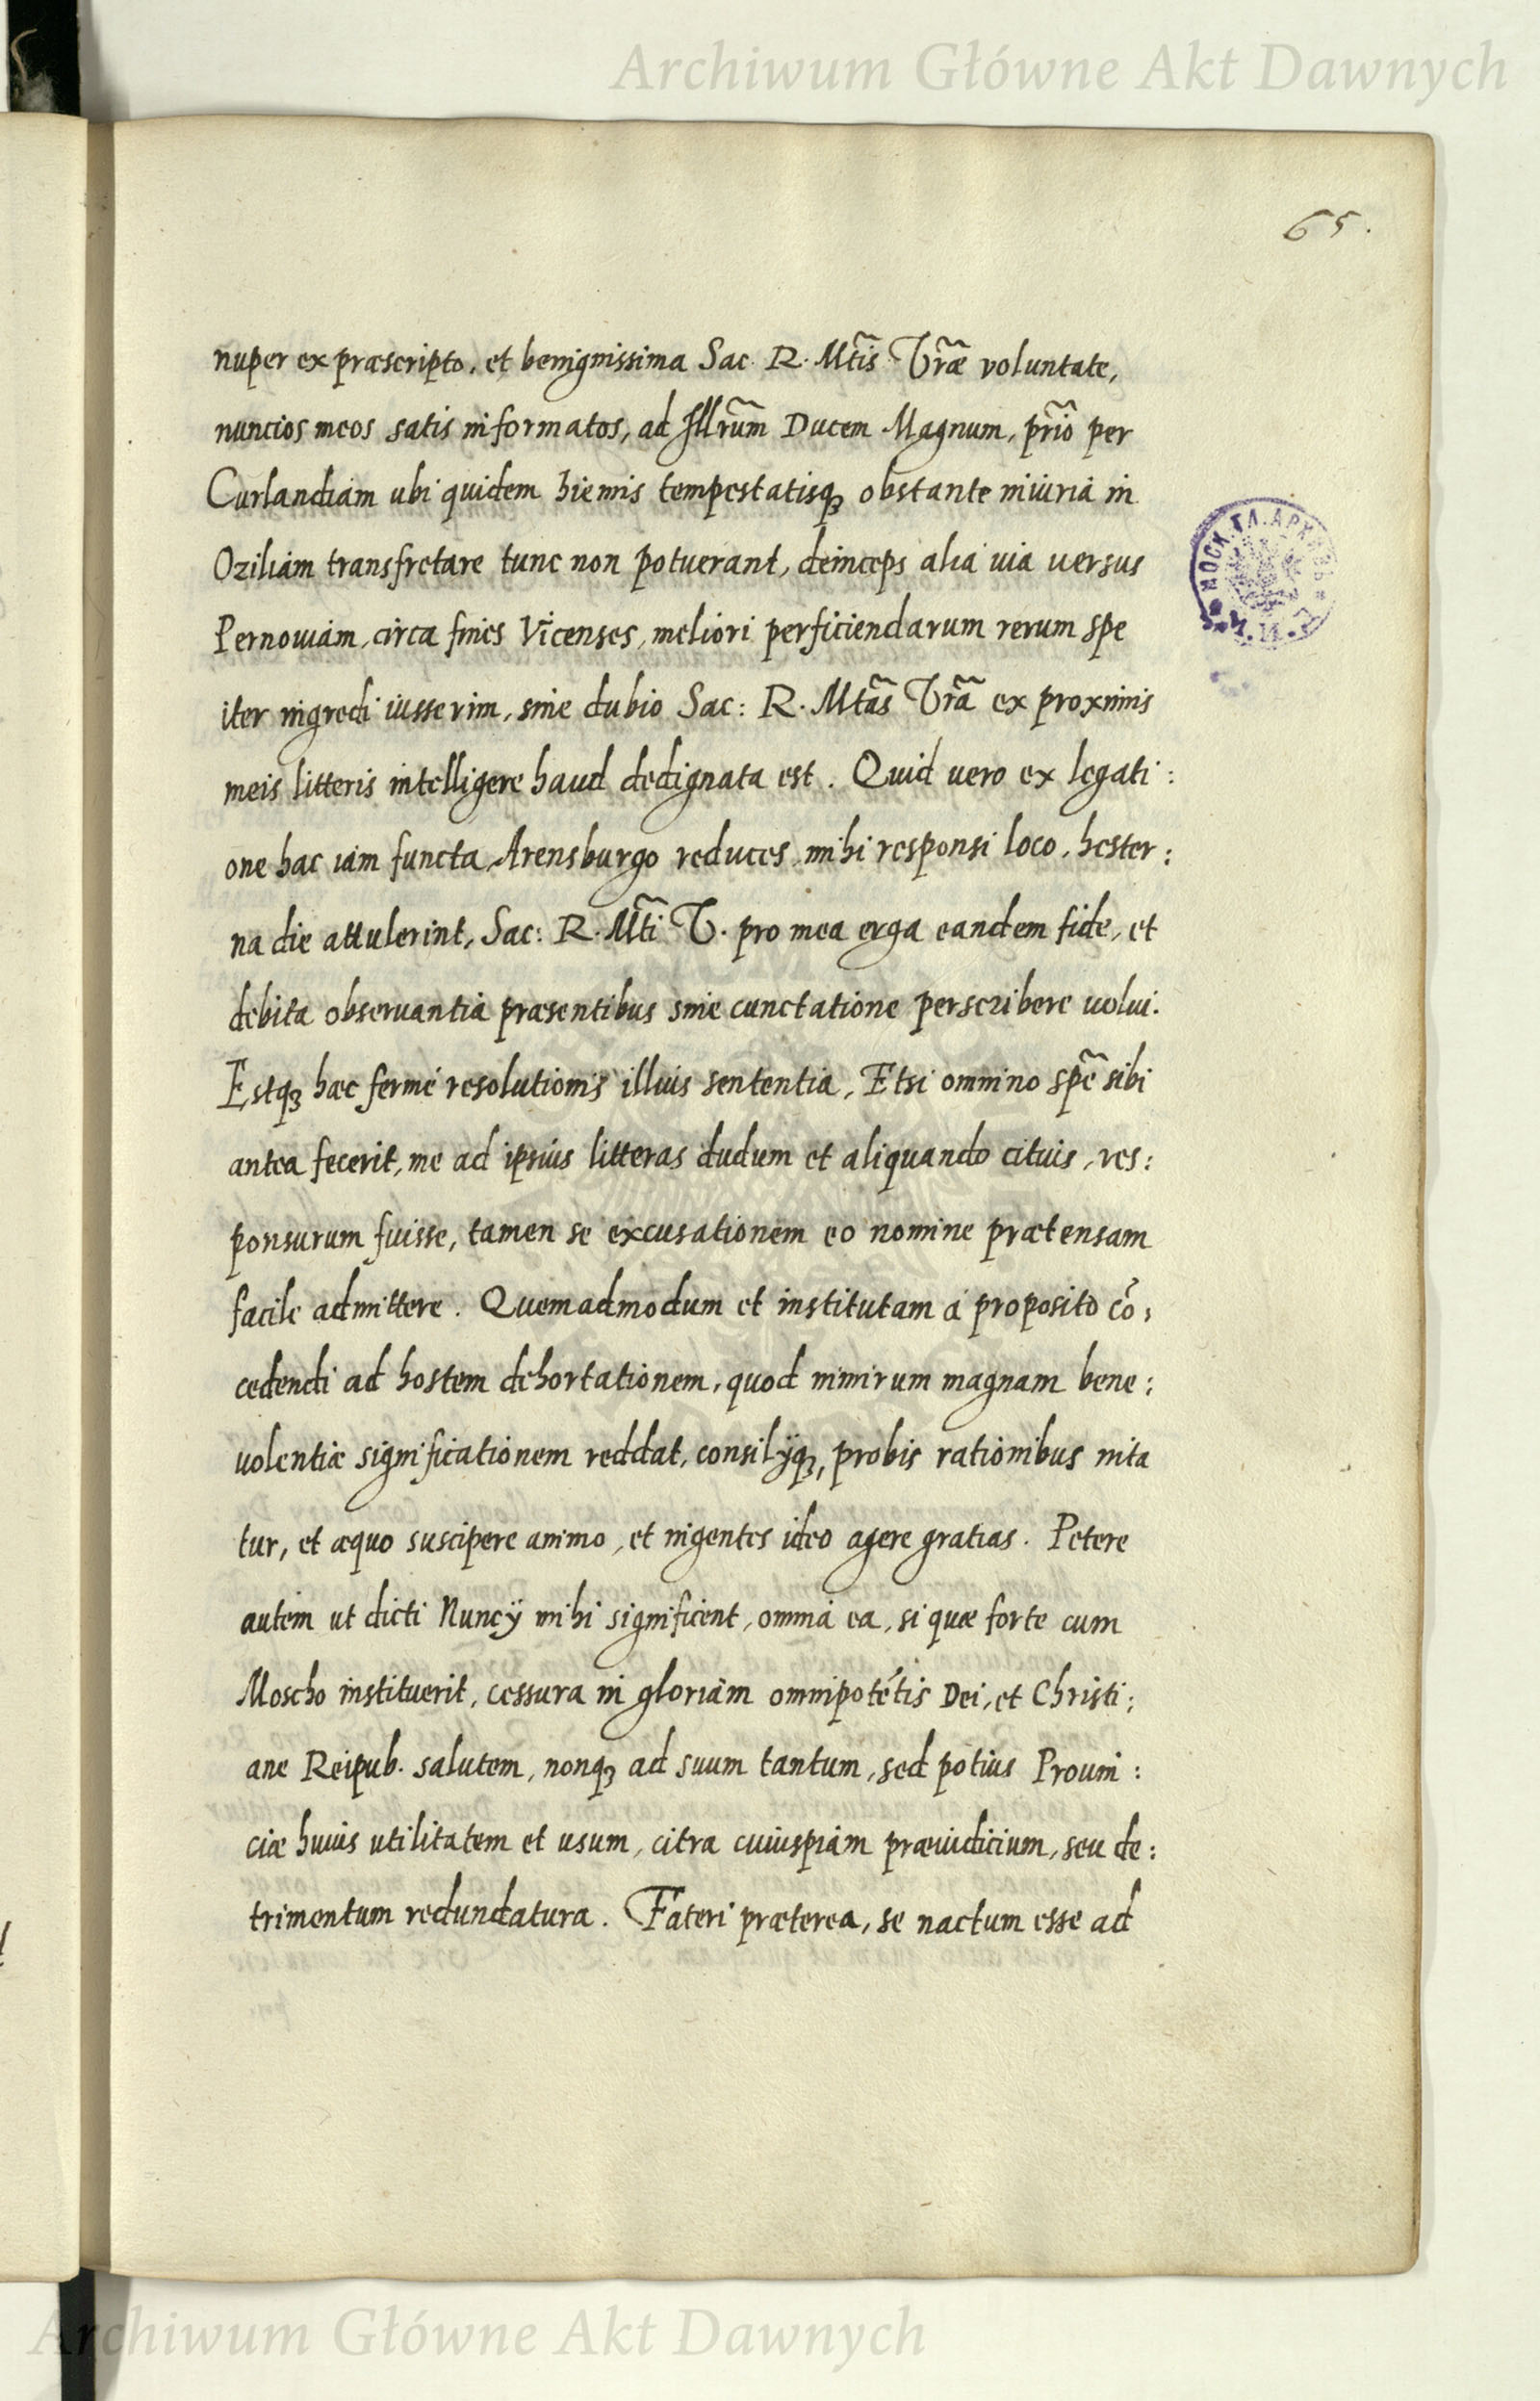 Archiwum Główne Akt Dawnych
65.
nuper ex præscripto, et benignissima Sac R. Mt̃is Vr̃æ voluntate,
nuncios meos satis informatos, ad Illr̃um Ducem Magnum, pr̃io per
Curlandiam ubi quidem hiemis tempestatisqꝫ obstante iniuria in
Oziliam transfretare tunc non potuerant, deinceps alia uia uersus
Pernouiam, circa fines Vicenses, meliori perficiendarum rerum spe
iter ingredi iusserim, sine dubio Sac: R. Mtãs Vr̃a ex proximis
meis litteris intelligere haud dedignata est. Quid vero ex legati:
one hac iam functa, Arensburgo reduces, mihi responsi loco, hester:
na die attulerint, Sac: R. Mt̃i V. pro mea erga eandem fide, et
debita obseruantia præsentibus sine cunctatione perscribere uolui.
Estqꝫ hæc fermé resolutionis illius sententia, Etsi omnino spẽ sibi
antea fecerit, me ad ipsius litteras dudum et aliquando citius, res:
ponsurum fuisse, tamen se excusationem eo nomine prætensam
facile admittere. Quemadmodum et institutam á proposito cō:
cedendi ad hostem dehortationem, quod nimirum magnam bene:
uolentiæ significationem reddat, consilijqꝫ, probis rationibus nita
tur, et æquo suscipere animo, et ingentes ideo agere gratias. Petere
autem ut dicti Nuncÿ mihi significent, omnia ea, si quæ forte cum
Moscho instituerit, cessura in gloriam omnipotētis Dei, et Christi:
ane Reipub. salutem, nonqꝫ ad suum tantum, sed potius Prouin:
ciæ huius utilitatem et usum, citra cuiuspiam præiudicium, seu de:
trimentum redundatura. Fateri præterea, se nactum esse ad
МОСК. ГЛ. АРХИВЪ М.И.Д.
Archiwum Główne Akt Dawnych